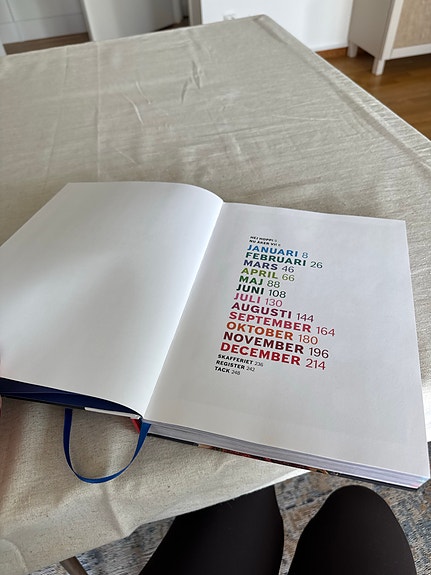 HEJ HOPP! 5
NU ÄKER VI! 6
JANUARI 8
FEBRUARI 26
MARS 46
APRIL 66
MAJ 88
JUNI 108
JULI 130
AUGUSTI 144
SEPTEMBER 164
OKTOBER 180
NOVEMBER 196
DECEMBER 214
SKAFFERIET 236
REGISTER 242
TACK 248